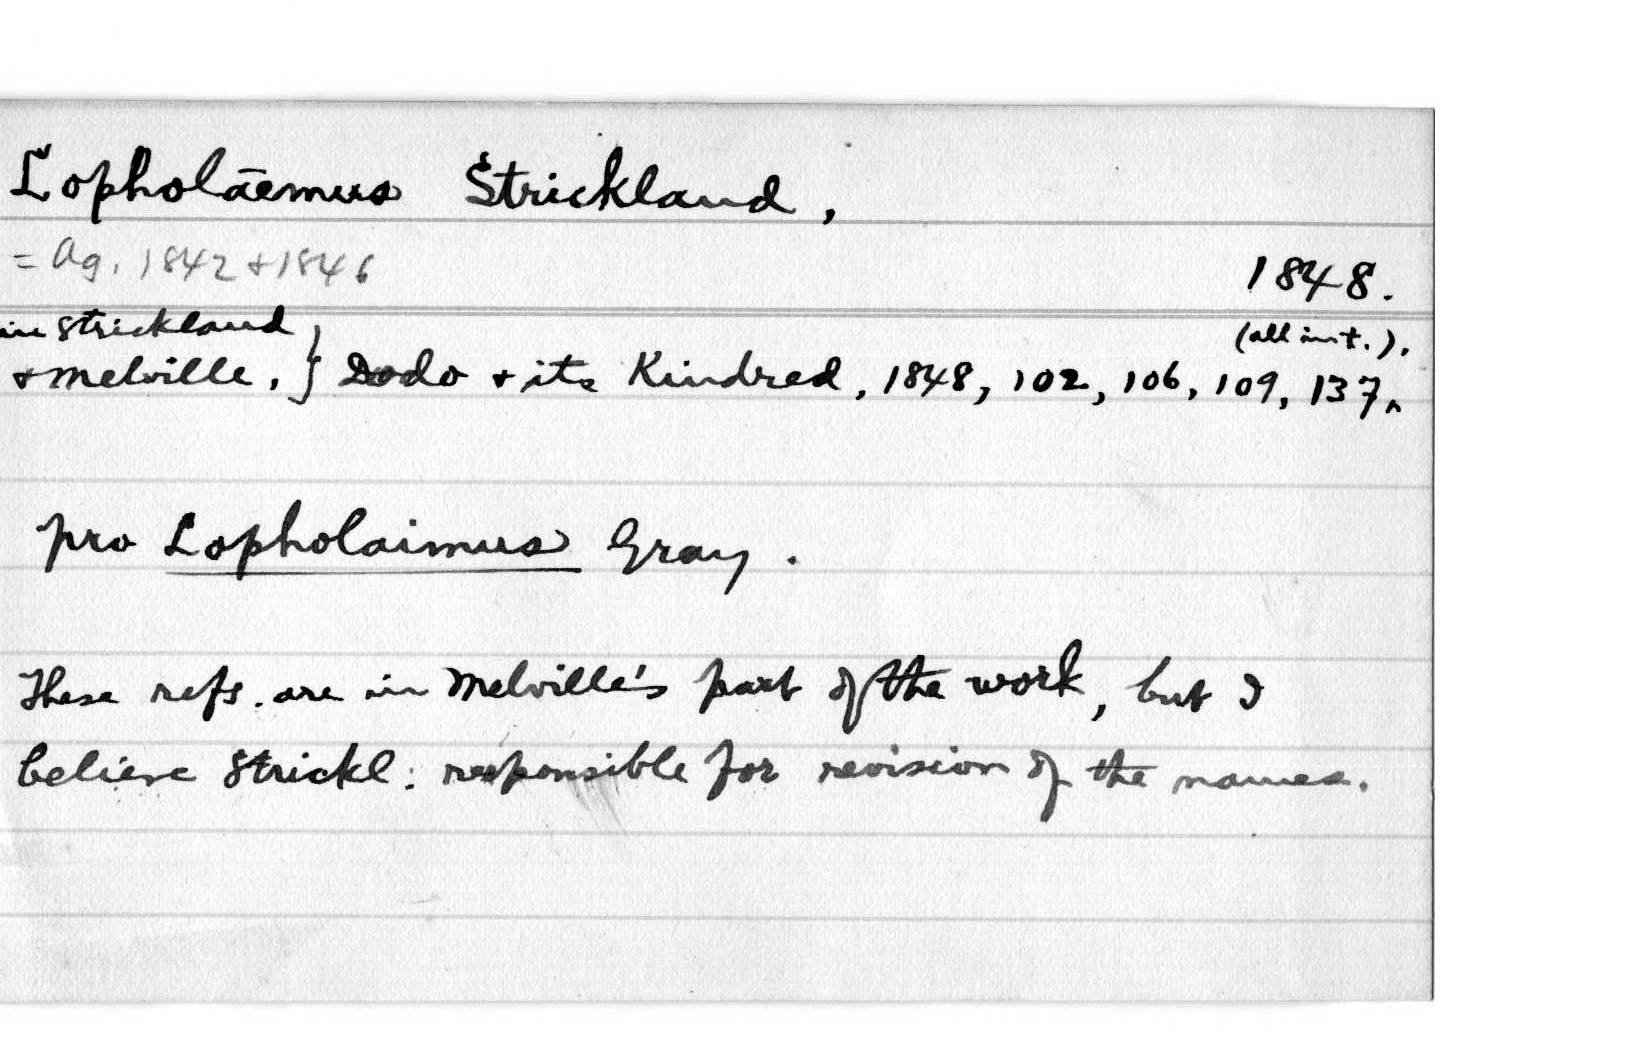 Lopholāemus Strickland,
= Ag. 1842 + 1846
1848.
in Strickland
(all in t.).
& Melville, } Dodo & its Kindred, 1848, 102, 106, 109, 137.
pro Lopholaimus Gray.
These refs. are in Melville's part of the work, but I
believe Strickl: responsible for revision of the names.